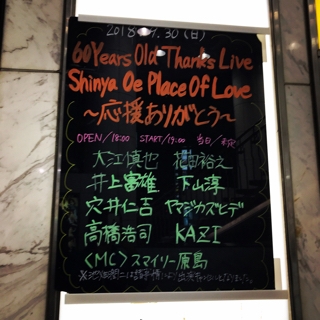 2018. .30(日)
60Years Old Thanks Live
Shinya Oe Place Of Love
〜応援ありがとう〜
OPEN/18:00 START/19:00 当日/
大江慎也 池田裕之
井上富雄 下山淳
穴井仁吉 ヤマジカズヒデ
高橋浩司 KAZI
〈MC〉スマイリー原島